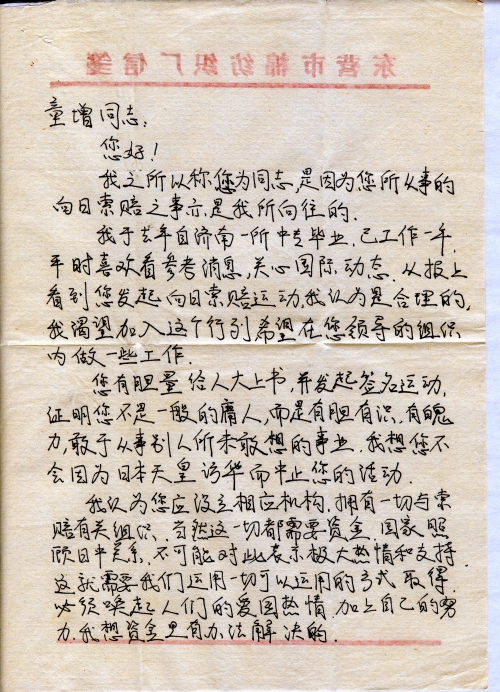 东营市棉纺织厂信笺
童增同志:
您好!
我之所以称您为同志,是因为您所从事的
向日索赔之事亦是我所向往的.
我于去年自济南一所中专毕业,已工作一年,
平时喜欢看参考消息,关心国际动态.从报上
看到您发起向日索赔运动,我认为是合理的,
我渴望加入这个行列希望在您领导的组织
内做一些工作.
您有胆量给人大上书,并发起签名运动,
证明您不是一般的庸人,而是有胆有识,有魄
力,敢于从事别人所未敢想的事业.我想您不
会因为日本天皇访华而中止您的活动.
我认为您应设立相应机构,拥有一切与索
赔有关组织.当然这一切都需要资金.国家照
顾日中关系,不可能对此表示极大热情和支持.
这就需要我们运用一切可以运用的方式取得.
必须唤起人们的爱国热情.加上自己的努
力.我想资金是有办法解决的.